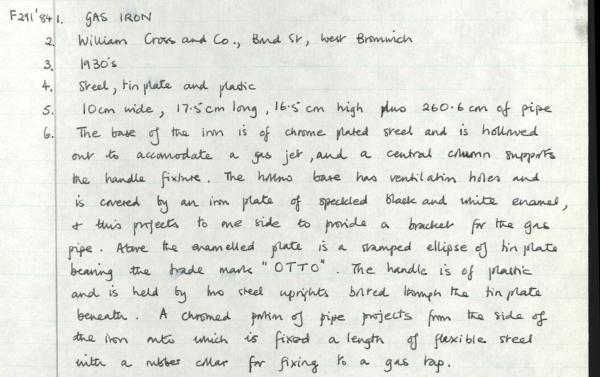 F291'84 1. GAS IRON
2. William Cross and Co., Bond St, West Bromwich
3. 1930's
4. Steel, tin plate and plastic
5. 10cm wide, 17.5cm long, 16.5 cm high plus 260.6 cm of pipe
6. The base of the iron is of chrome plated steel and is hollowed
out to accomodate a gas jet, and a central column supports
the handle fixture. The hollow base has ventilation holes and
is covered by an iron plate of speckled black and white enamel,
& this projects to one side to provide a bracket for the gas
pipe. Above the enamelled plate is a stamped ellipse of tin plate
bearing the trade mark "OTTO". The handle is of plastic
and is held by two steel uprights bolted through the tin plate
beneath. A chromed portion of pipe projects from the side of
the iron onto which is fixed a length of flexible steel
with a rubber collar for fixing to a gas tap.